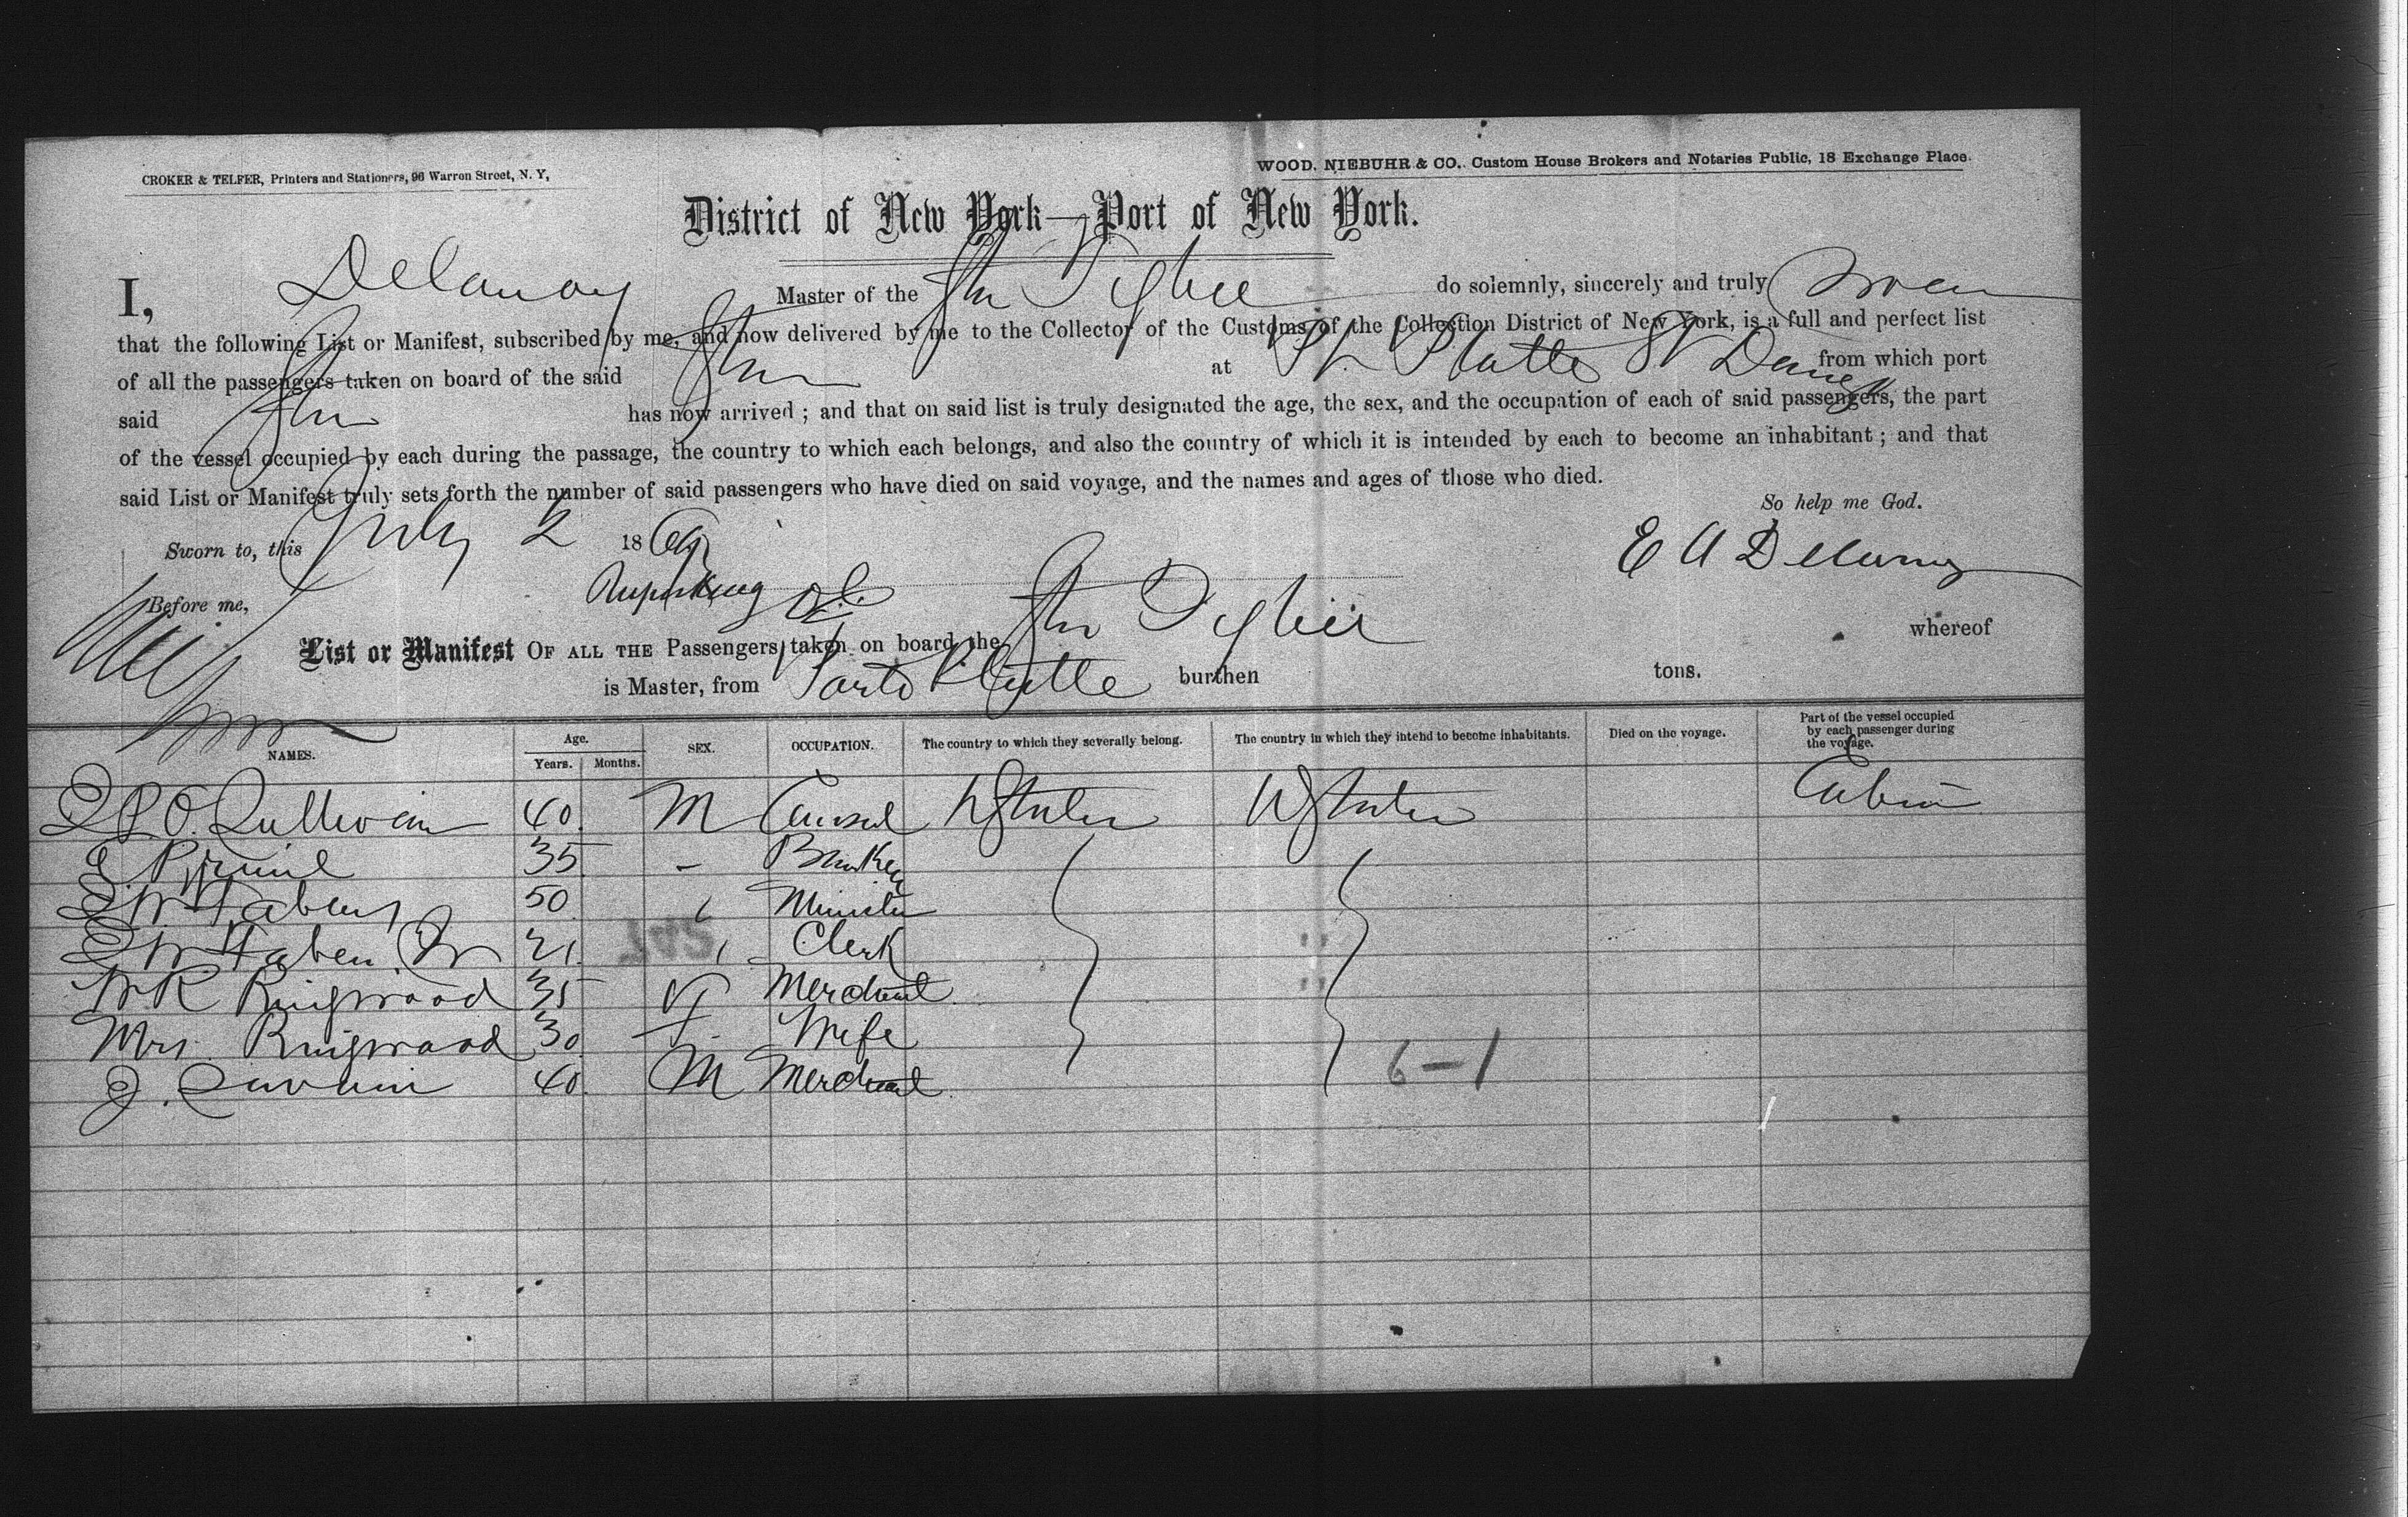 CROKER & TELFER, Printers and Stationers, 96 Warren Street, N. Y,
WOOD, NIEBUHR & CO., Custom House Brokers and Notaries Public, 18 Exchange Place.
District of New York—Port of New York.
I, Delanoy Master of the Str Tybee do solemnly, sincerely and truly Swear
that the following List or Manifest, subscribed by me, and now delivered by me to the Collector of the Customs of the Collection District of New York, is a full and perfect list
of all the passengers taken on board of the said Str at Pt. Platte St Domg from which port
said Str has now arrived; and that on said list is truly designated the age, the sex, and the occupation of each of said passengers, the part
of the vessel occupied by each during the passage, the country to which each belongs, and also the country of which it is intended by each to become an inhabitant; and that
said List or Manifest truly sets forth the number of said passengers who have died on said voyage, and the names and ages of those who died.
So help me God.
Sworn to, this July 2 1869
E A Delanoy
Before me,
List or Manifest OF ALL THE Passengers taken on board the Str Tybee whereof
is Master, from Porto Platte burthen tons.
NAMES. Age. Years. Months. SEX. OCCUPATION. The country to which they severally belong. The country in which they intend to become inhabitants. Died on the voyage. Part of the vessel occupied by each passenger during the voyage.
O. Sullivan 40 M Consul UStates UStates Cabin
35 Banker
J W Fabens 50 Minister
J W Faben Jr 21 Clerk
W R Ringwood 35 Merchant
Mrs. Ringwood 30 F Wife
J. 40 M Merchant
6-1